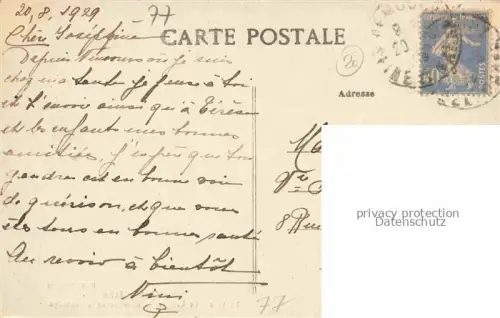 20, 8, 1929
77
Chère Joséphine
CARTE POSTALE
Depuis Nemours où je suis
chez ma tante je pense à toi
et t'envoie ainsi qu'à
et les enfants mes bonnes
amitiés. J'espère que ton
gendre est en bonne voie
de guérison, et que vous
êtes tous en bonne santé
Au revoir à bientôt
Nini
20
Adresse
POSTES
Ma
Vve
8 Rue
privacy protection
Datenschutz
77